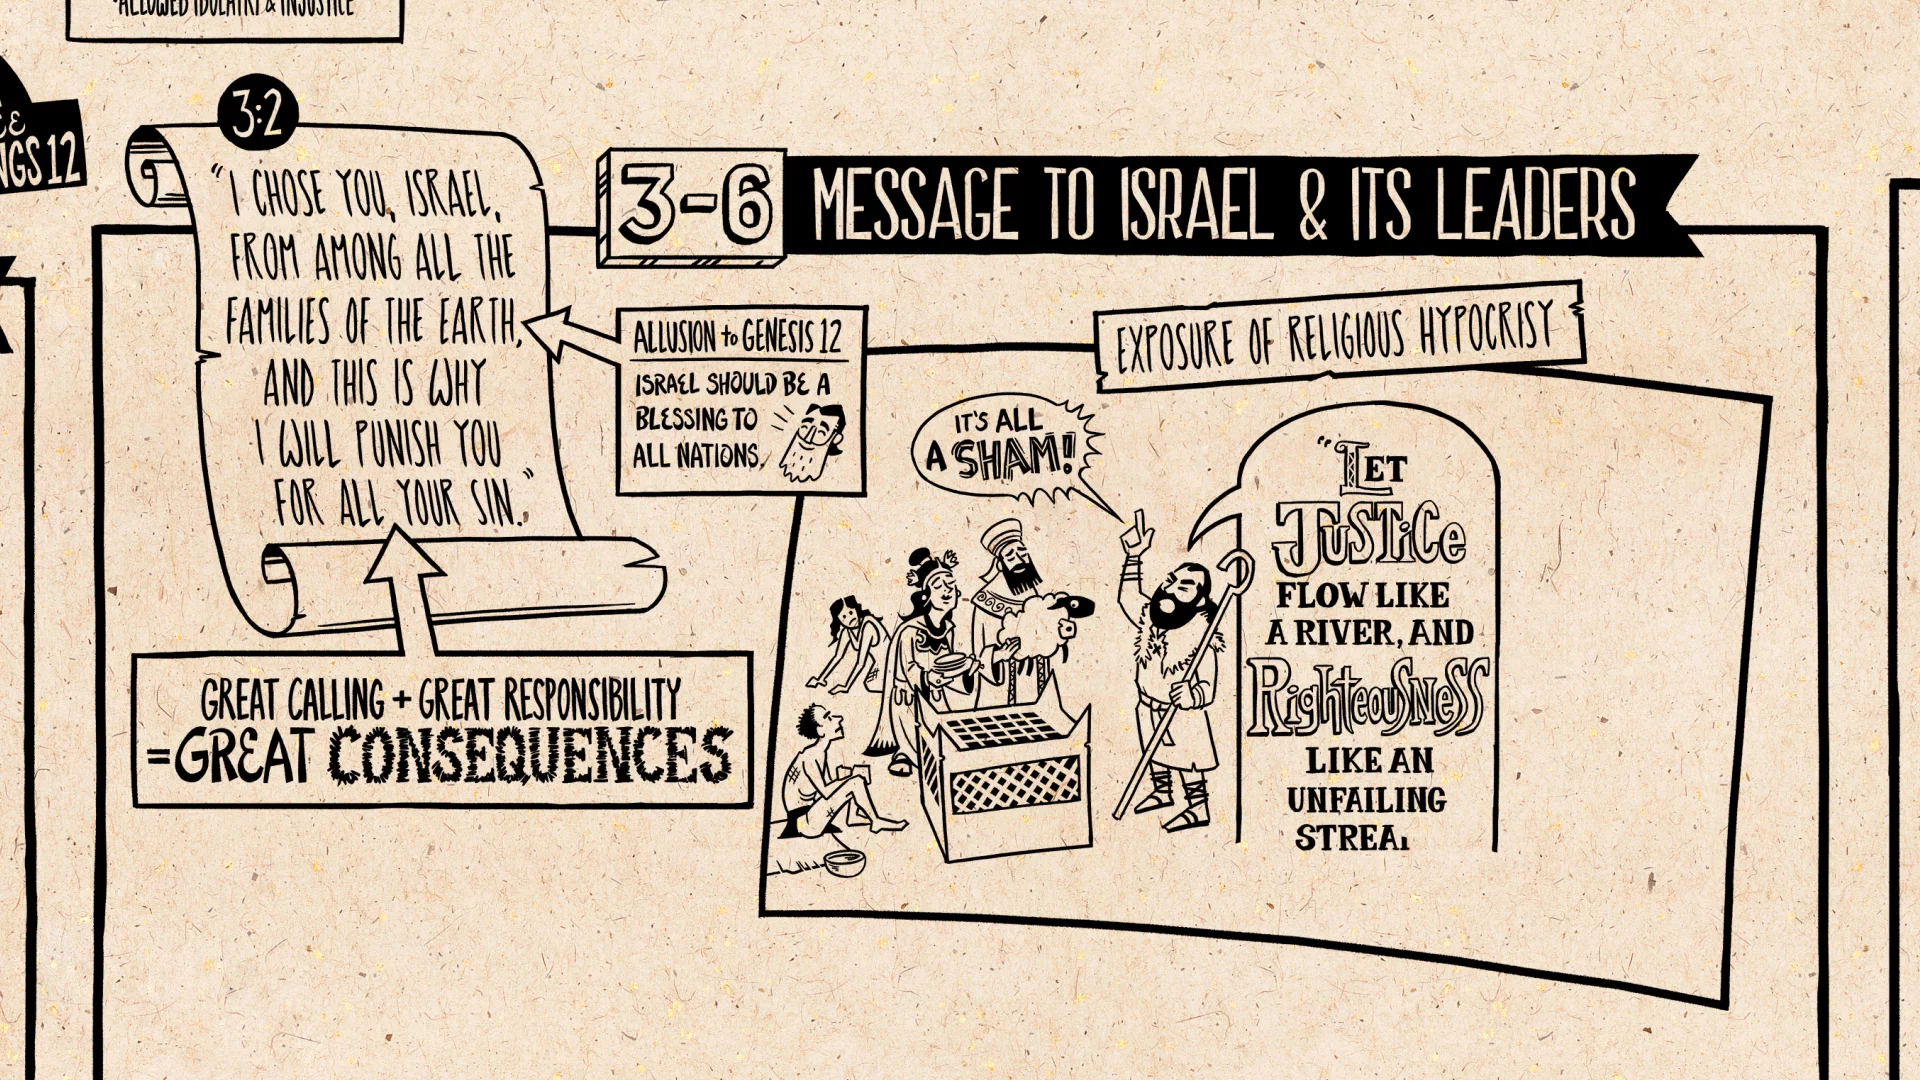 •ALLOWED IDOLATRY & INJUSTICE
NGS 12
3:2
"I CHOSE YOU, ISRAEL,
FROM AMONG ALL THE
FAMILIES OF THE EARTH,
AND THIS IS WHY
I WILL PUNISH YOU
FOR ALL YOUR SIN."
GREAT CALLING + GREAT RESPONSIBILITY
=GREAT CONSEQUENCES
3-6 MESSAGE TO ISRAEL & ITS LEADERS
ALLUSION to GENESIS 12
ISRAEL SHOULD BE A
BLESSING TO
ALL NATIONS.
EXPOSURE OF RELIGIOUS HYPOCRISY
IT'S ALL
A SHAM!
"LET
JUSTICE
FLOW LIKE
A RIVER, AND
RIGHTEOUSNESS
LIKE AN
UNFAILING
STREA